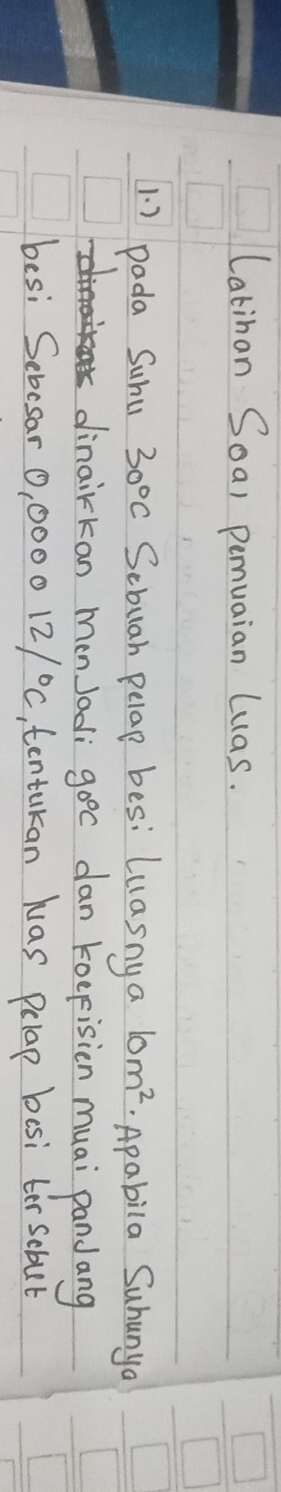 Latihan Soal Pemuaian Luas.
1.) pada Suhu 30°C Sebuah pelap besi Luasnya 10m². Apabila Suhunya
dinaikkan menJadi 90°C dan koefisien muai pandang
besi Sebesar 0,0000 12/°C, tentukan luas pelap besi tersebut